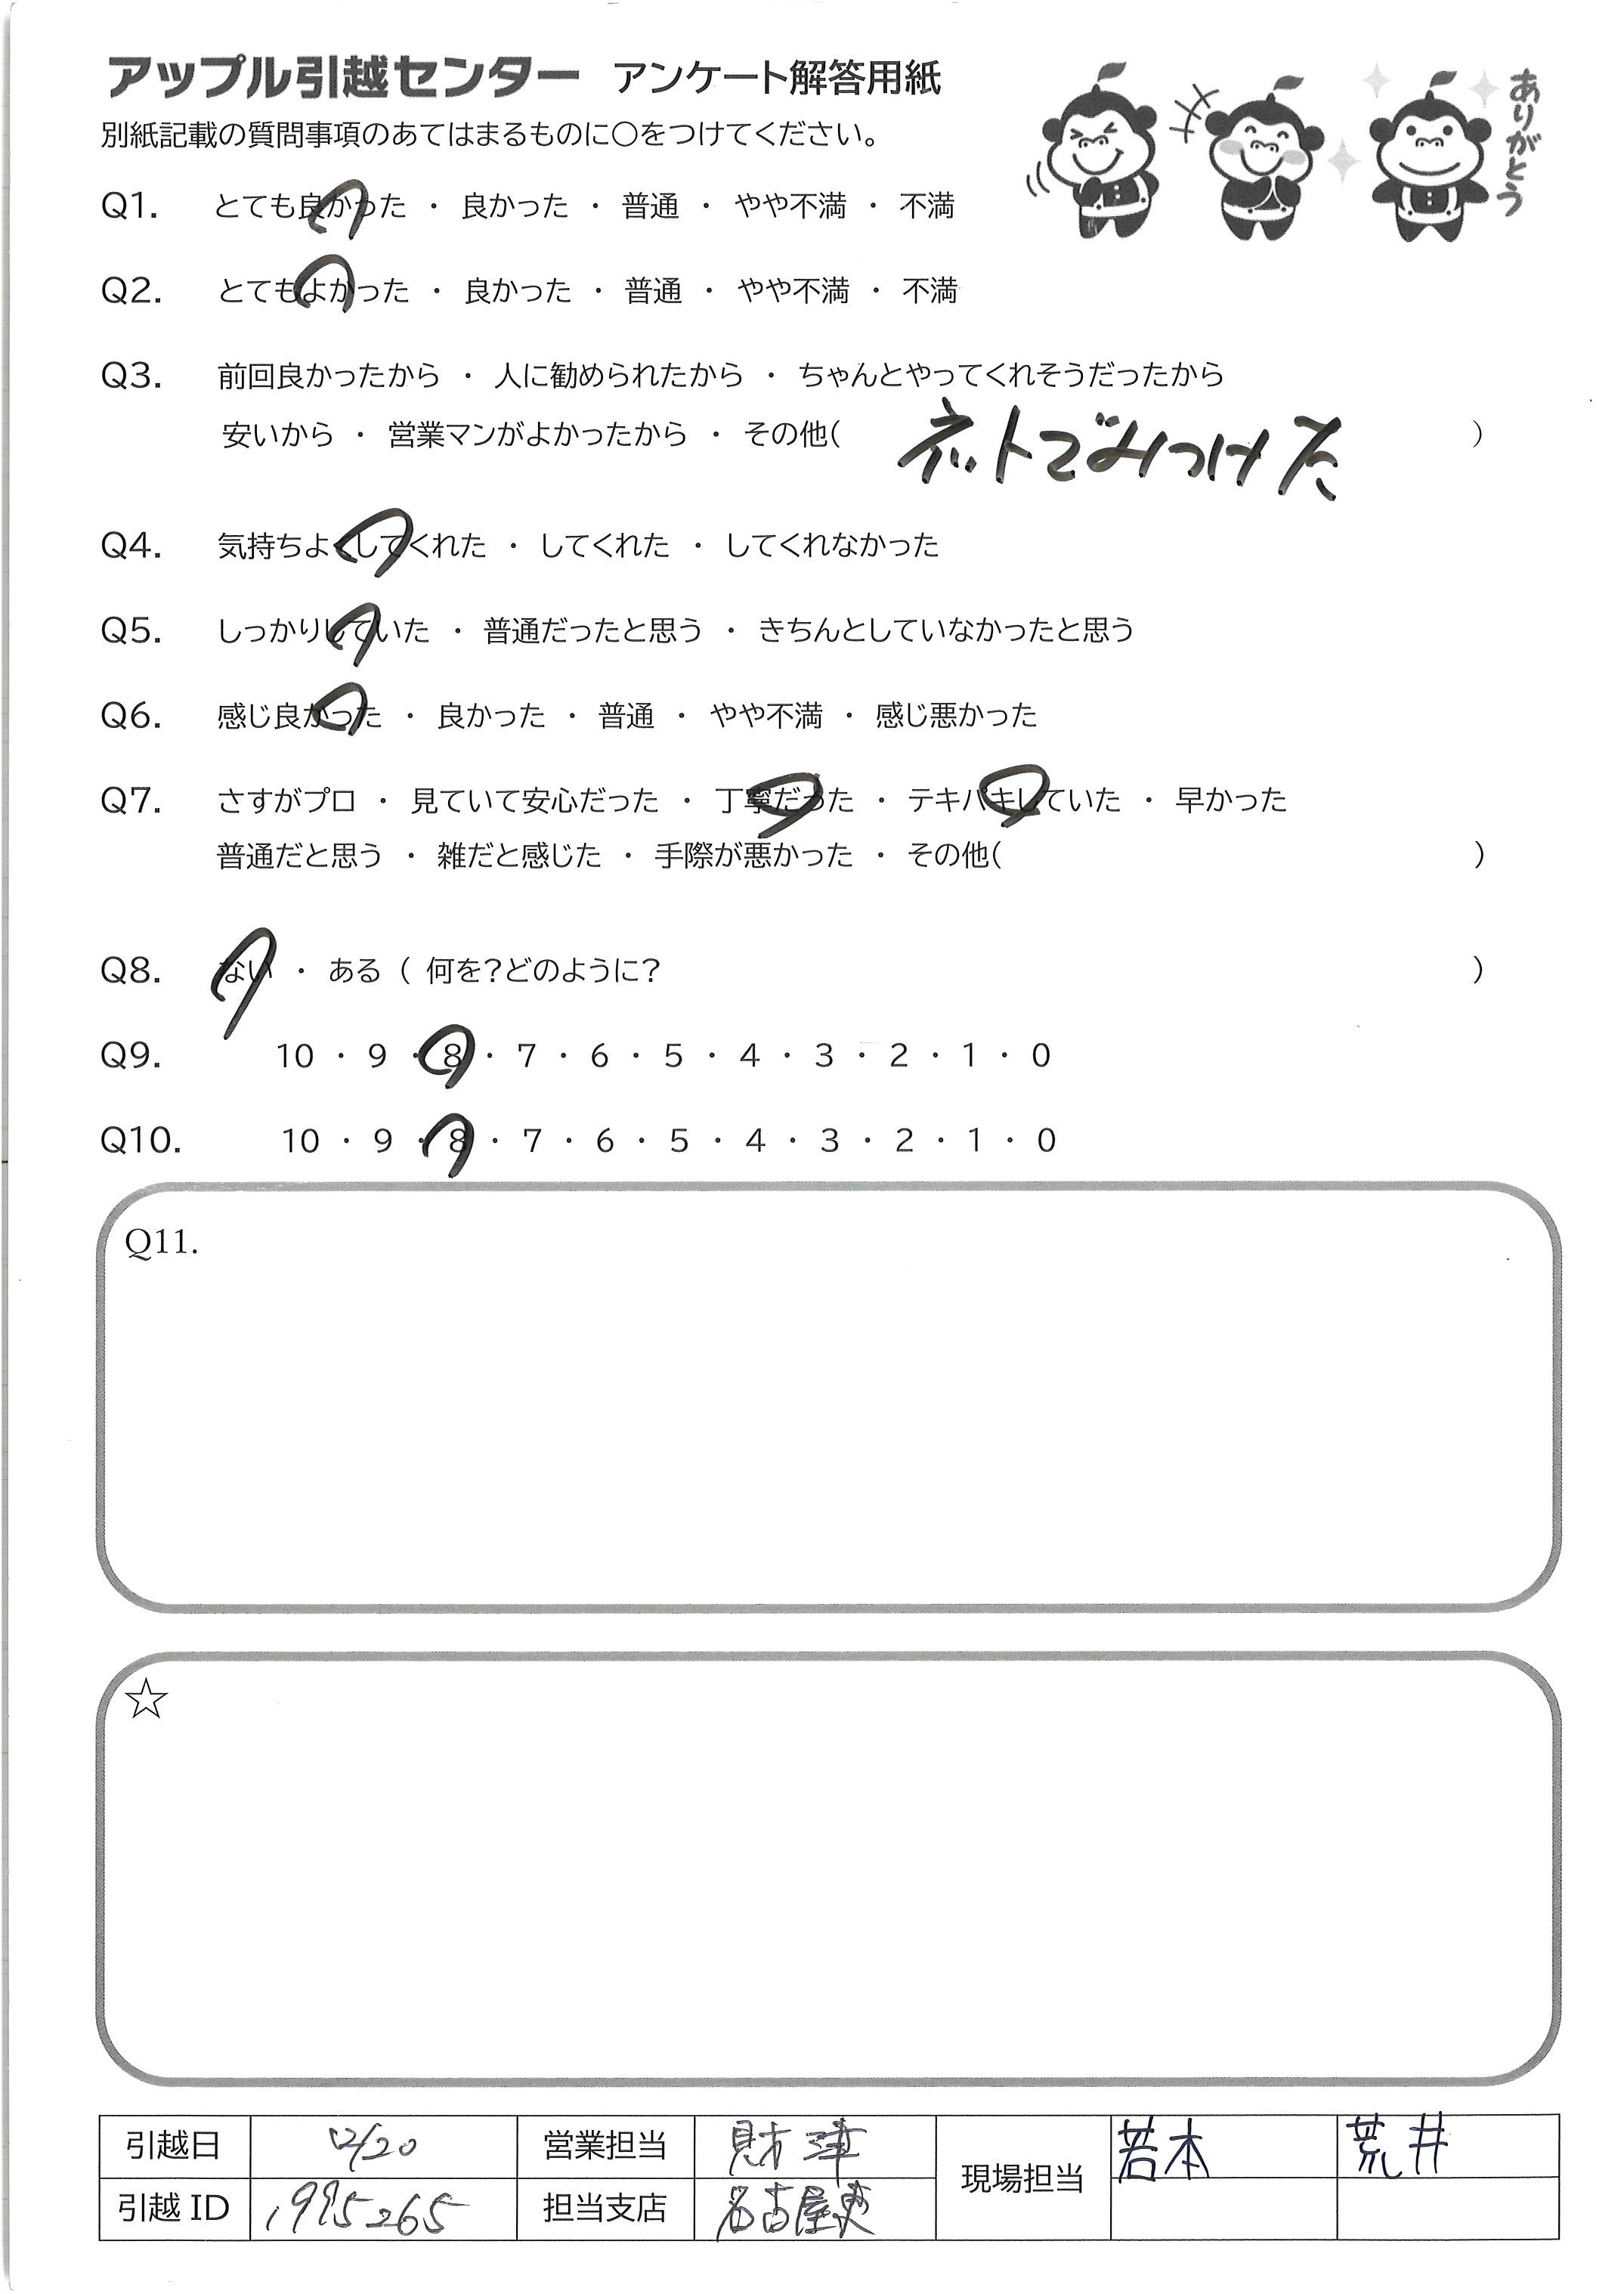 アップル引越センター アンケート解答用紙
ありがとう
別紙記載の質問事項のあてはまるものに○をつけてください。
Q1. とても良かった ・ 良かった ・ 普通 ・ やや不満 ・ 不満
Q2. とてもよかった ・ 良かった ・ 普通 ・ やや不満 ・ 不満
Q3. 前回良かったから ・ 人に勧められたから ・ ちゃんとやってくれそうだったから
安いから ・ 営業マンがよかったから ・ その他( ネットでみつけた )
Q4. 気持ちよくしてくれた ・ してくれた ・ してくれなかった
Q5. しっかりしていた ・ 普通だったと思う ・ きちんとしていなかったと思う
Q6. 感じ良かった ・ 良かった ・ 普通 ・ やや不満 ・ 感じ悪かった
Q7. さすがプロ ・ 見ていて安心だった ・ 丁寧だった ・ テキパキしていた ・ 早かった
普通だと思う ・ 雑だと感じた ・ 手際が悪かった ・ その他( )
Q8. ない ・ ある ( 何を?どのように? )
Q9. 10 ・ 9 ・ 8 ・ 7 ・ 6 ・ 5 ・ 4 ・ 3 ・ 2 ・ 1 ・ 0
Q10. 10 ・ 9 ・ 8 ・ 7 ・ 6 ・ 5 ・ 4 ・ 3 ・ 2 ・ 1 ・ 0
Q11.
☆
引越日 12/20 営業担当 財津 現場担当 若本 荒井
引越 ID 1995265 担当支店 名古屋